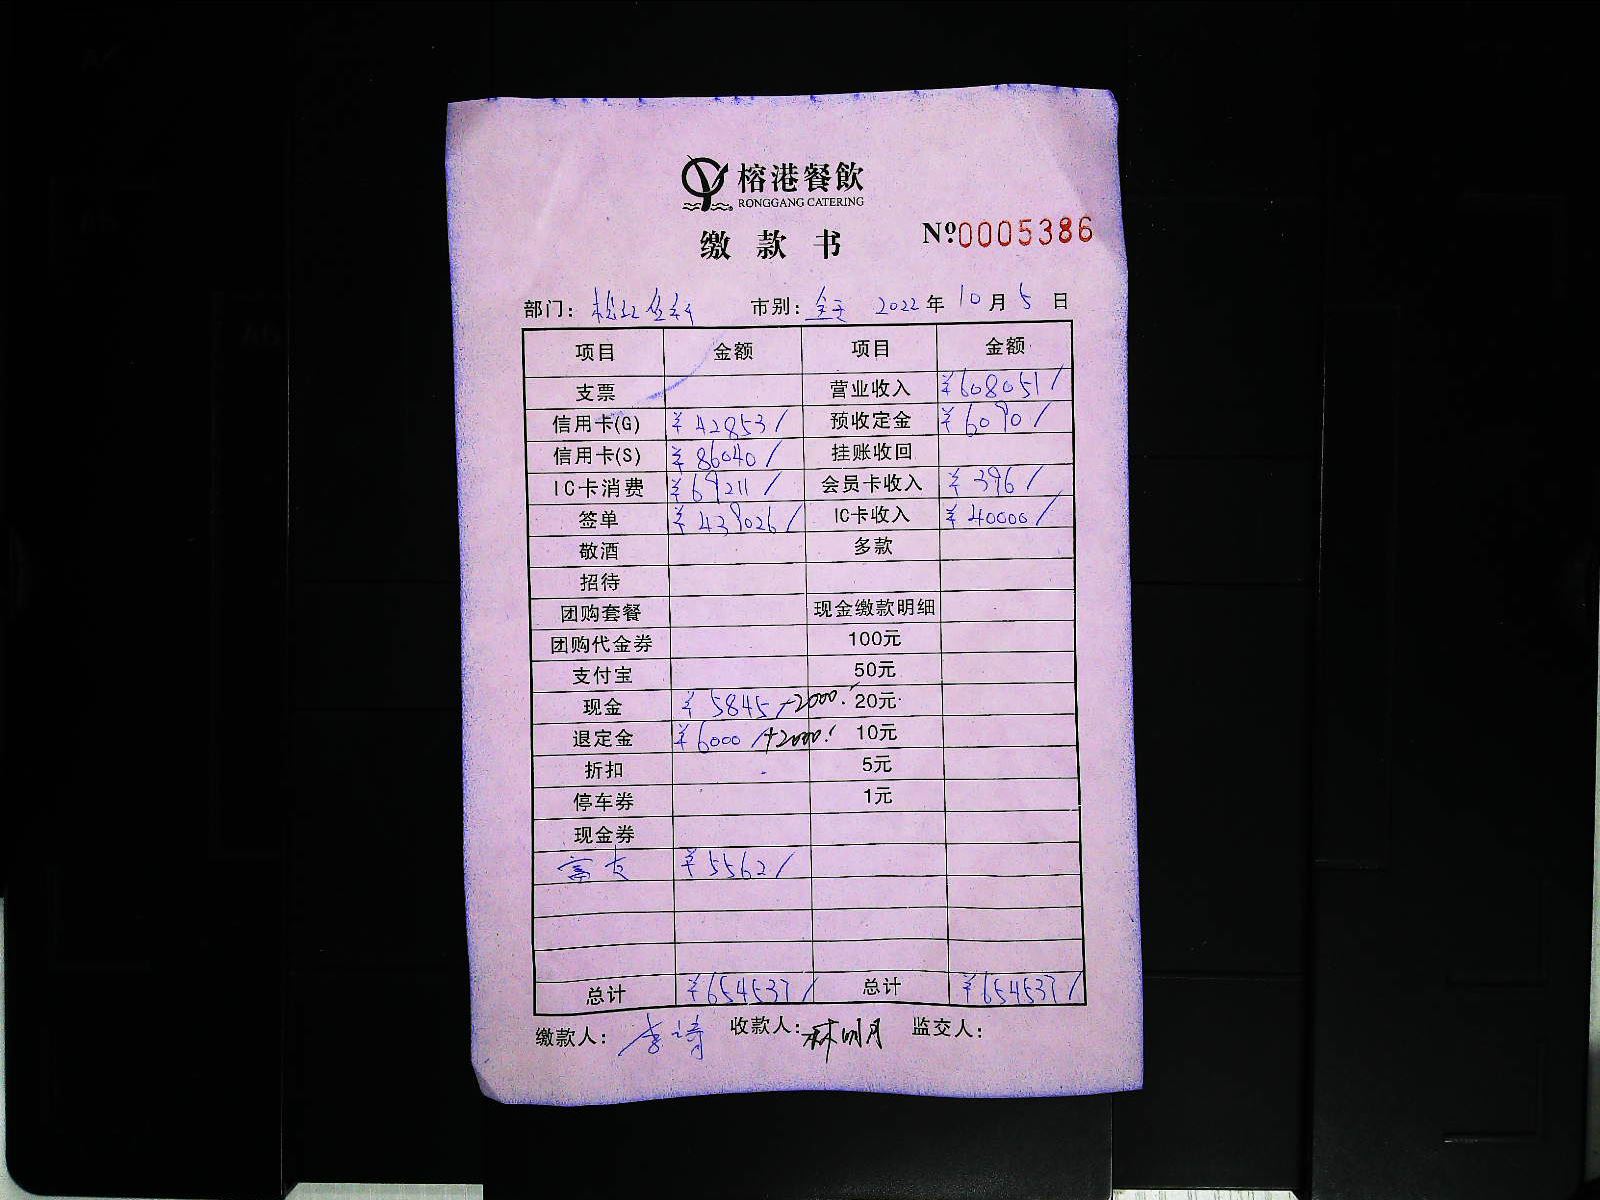 榕港餐飲
RONGGANG CATERING
缴款书 Nº0005386
部门： 市别：全天 2022年10月5日
项目 金额 项目 金额
支票 营业收入 ¥608051/
信用卡(G) ¥42853/ 预收定金 ¥6090/
信用卡(S) ¥86040/ 挂账收回
IC卡消费 ¥69211/ 会员卡收入 ¥396/
签单 ¥439026/ IC卡收入 ¥40000/
敬酒 多款
招待
团购套餐 现金缴款明细
团购代金券 100元
支付宝 50元
现金 ¥5845/-2000! 20元
退定金 ¥6000/+2000! 10元
折扣 5元
停车券 1元
现金券
富友 ¥5562/
总计 ¥654537/ 总计 ¥654537/
缴款人：李诗 收款人：林明月 监交人：